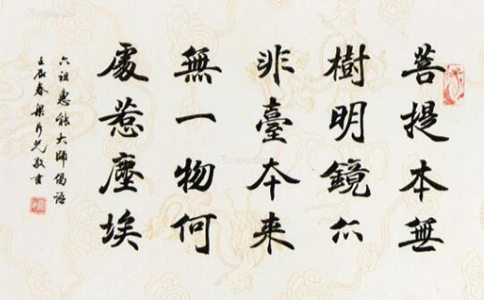 菩提本無
樹明鏡亦
非臺本來
無一物何
處惹塵埃
六祖惠能大師偈語
壬辰春梁敬書